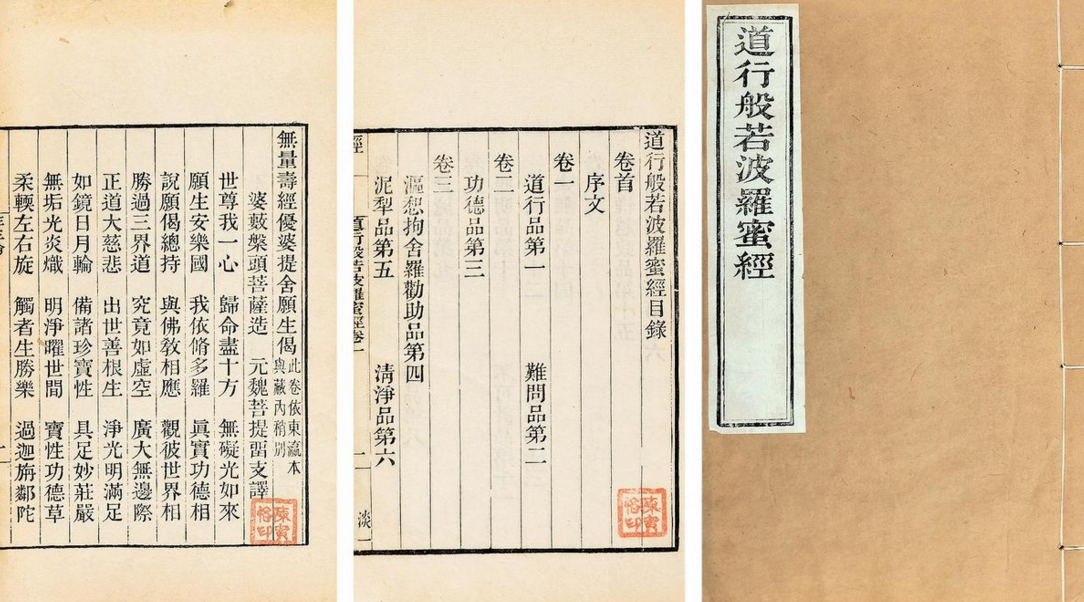 無量壽經優婆提舍願生偈 此卷依東瀛本與藏內稍別
婆藪槃頭菩薩造 元魏菩提畱支譯
世尊我一心 歸命盡十方 無礙光如來
願生安樂國 我依脩多羅 眞實功德相
說願偈總持 與佛敎相應 觀彼世界相
勝過三界道 究竟如虛空 廣大無邊際
正道大慈悲 出世善根生 淨光明滿足
如鏡日月輪 備諸珍寶性 具足妙莊嚴
無垢光炎熾 明淨曜世間 寶性功德草
柔輭左右旋 觸者生勝樂 過迦旃鄰陀
道行般若波羅蜜經目錄
卷首
序文
卷一
道行品第一 難問品第二
卷二
功德品第三
卷三
漚惒拘舍羅勸助品第四
泥犁品第五 淸淨品第六
道行般若波羅蜜經卷一
淡一
道行般若波羅蜜經